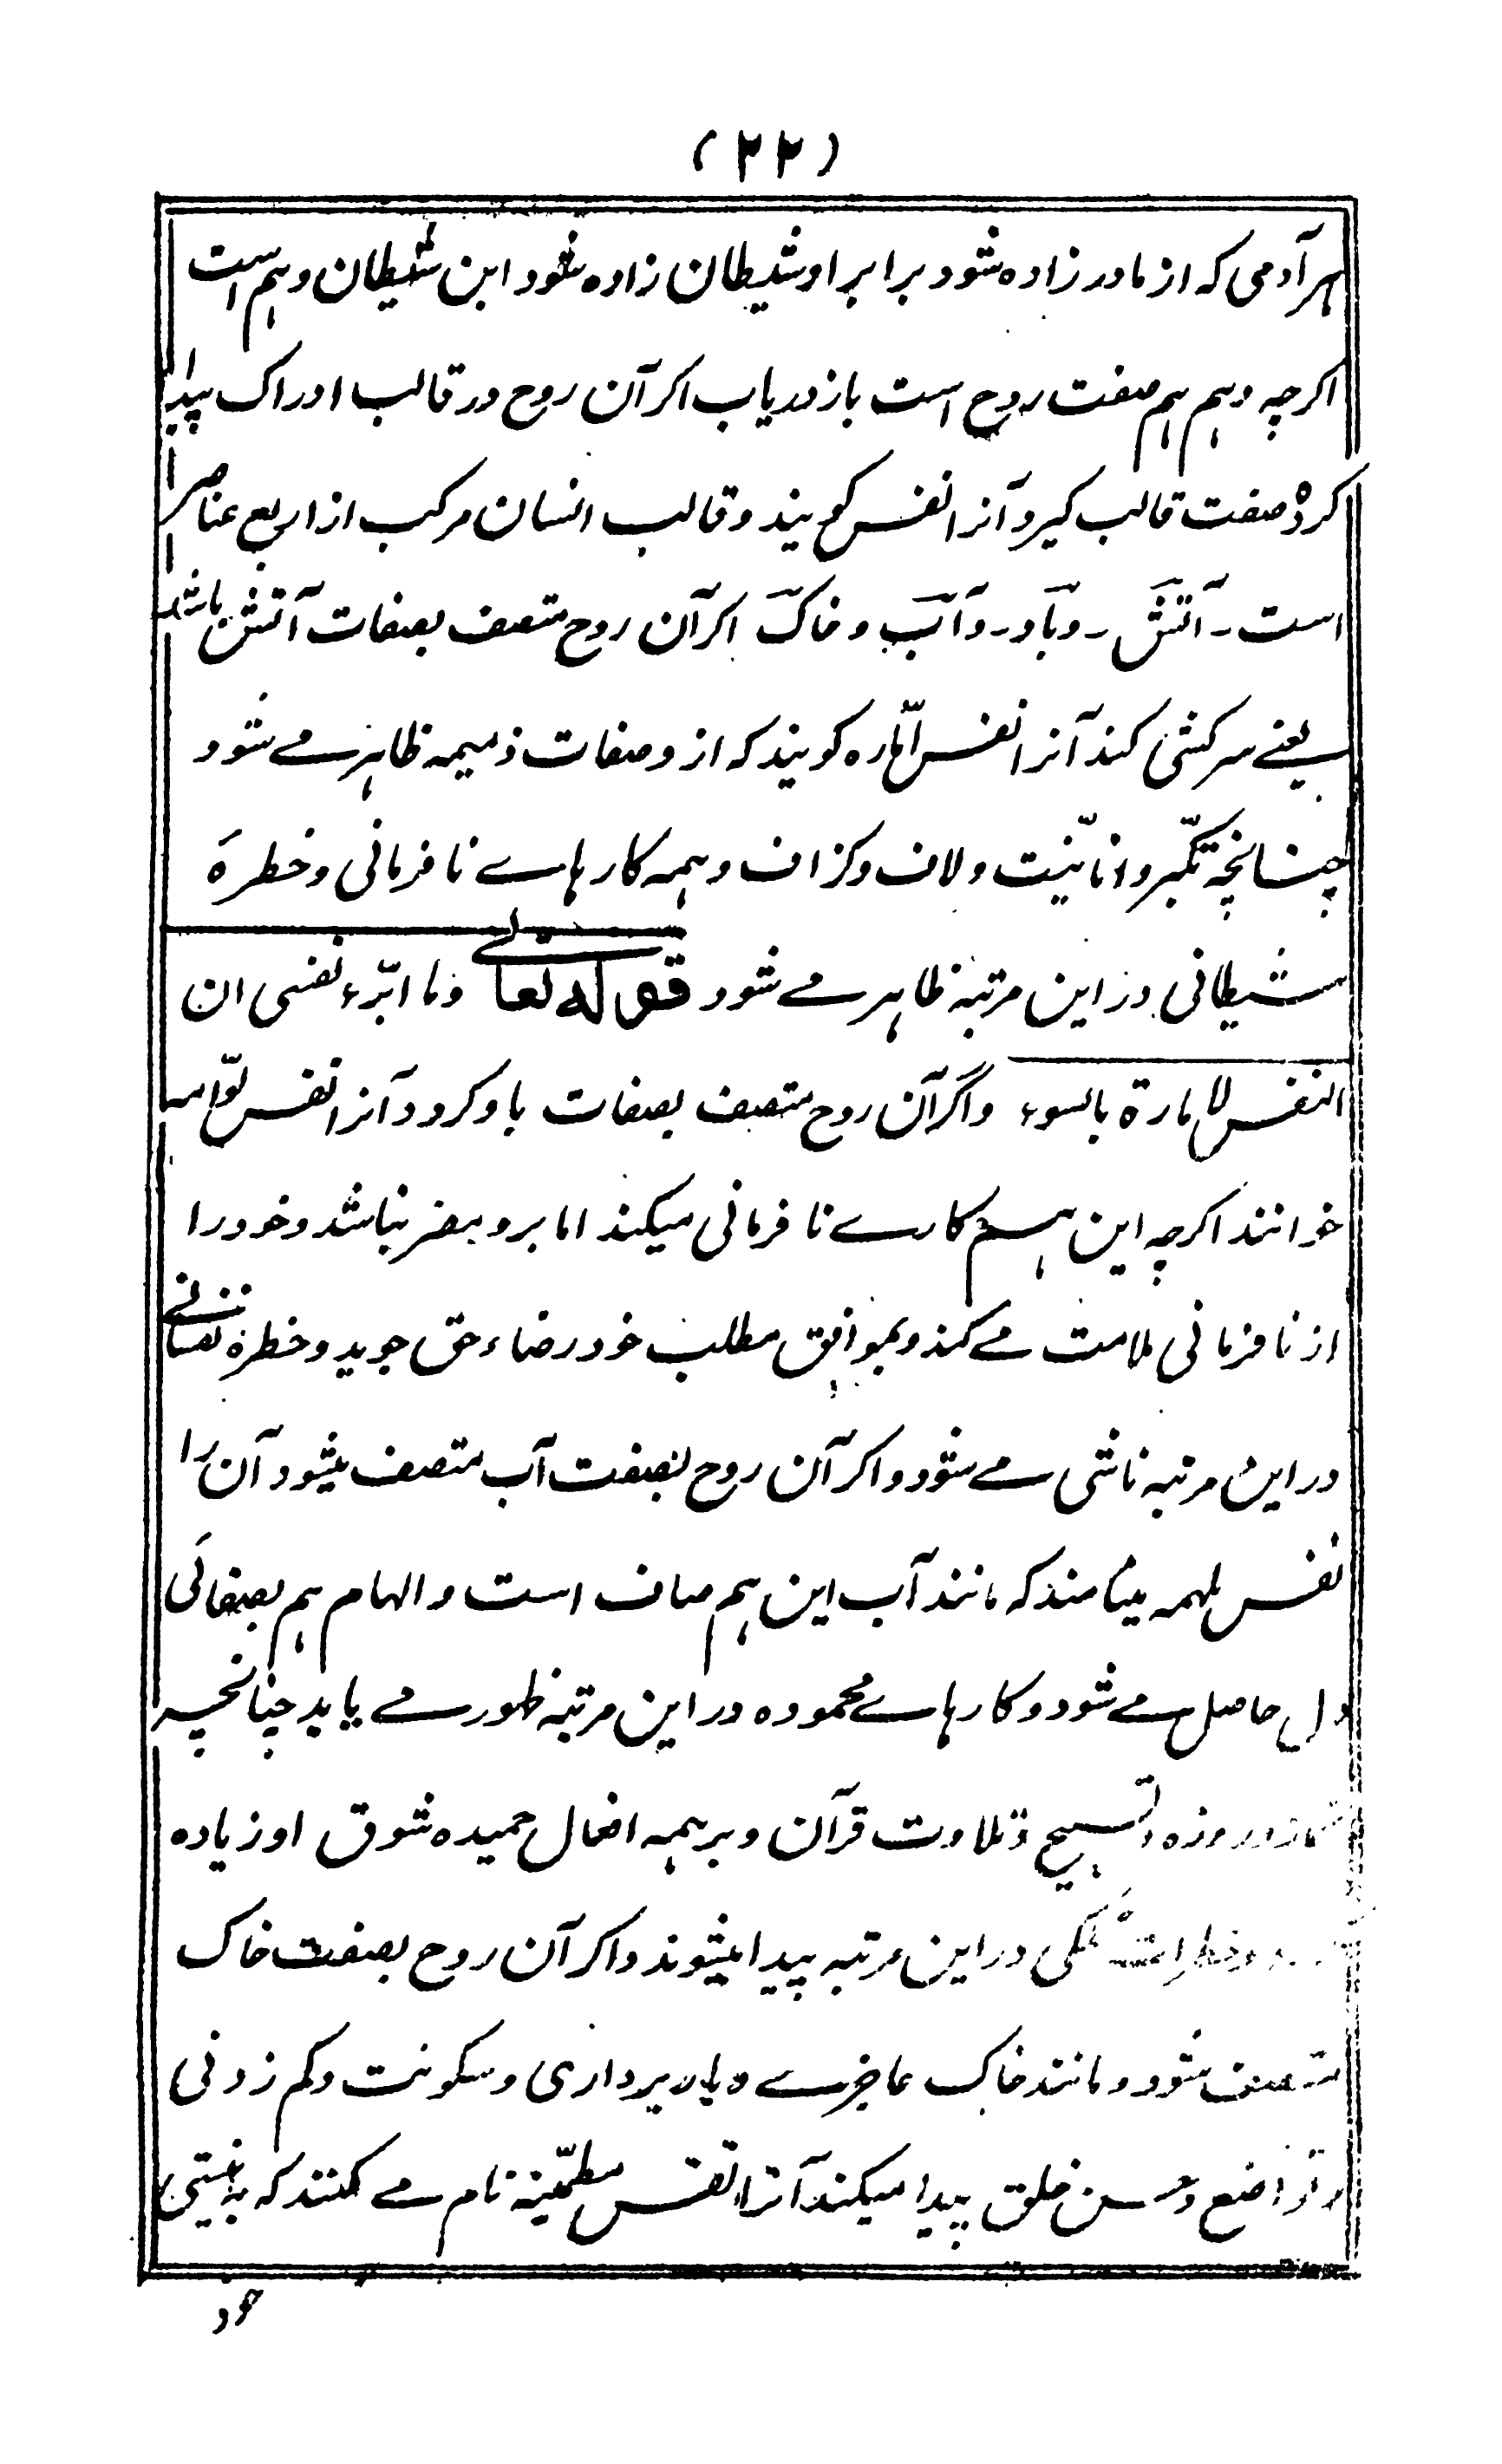 (۲۲)
ہر آدمی که از مادر زاده شود برابر او شیطان زاده شود این شیطان وہم است
اکرچه وہم ہم صفت روح است باز دریاب اکر آن روح در قالب ادراک پیدا
کرده صفت قالب کیرد آنرا نفس کویند و قالب انسان مرکب از اربع عناصر
است ـ آتش ـ و باد ـ و آب و خاک اکر آن روح متصف بصفات آتش باشد
یعنے سرکشی کند آنرا نفس امّاره کویند که از و صفات ذمیمه ظاہر مے شود
چنانچه تکبّر و انانیّت و لاف و کزاف و ہمه کارہاے نافرمانی و خطرهٔ
شیطانی در این مرتبه ظاہر مے شود قوله تعالے وما ابرّء نفسی ان
النفس لامارة بالسوء واگر آن روح متصف بصفات باد کردد آنرا نفس لوّامه
خوانند اکرچه این ہم کارے نافرمانی میکند اما برو مضر نباشد و خود را
از نافرمانی ملامت مے کند و بموافق مطلب خود رضاء حق جوید و خطرهٔ نفسانے
در این مرتبه ناشی مے شود و اکر آن روح بصفت آب متصف میشود آن را
نفس ملہمه مینامند که مانند آب این ہم صاف است و الہام ہم بصفائی
دل حاصل مے شود و کارہاے محموده در این مرتبه ظہور مے یابد چنانچه
نماز و روزه و تسبیح و تلاوت قرآن و بر ہمه افعال حمیده شوق او زیاده
ملکی در این مرتبه پیدا میشوند و اکر آن روح بصفت خاک
متصف شود و مانند خاک عاجزے و بار برداری و سکونت و کم زدنی
و تواضع و حسن خلق پیدا میکند آنرا نفس مطمّینه نام مے کنند که به نیستی
خود